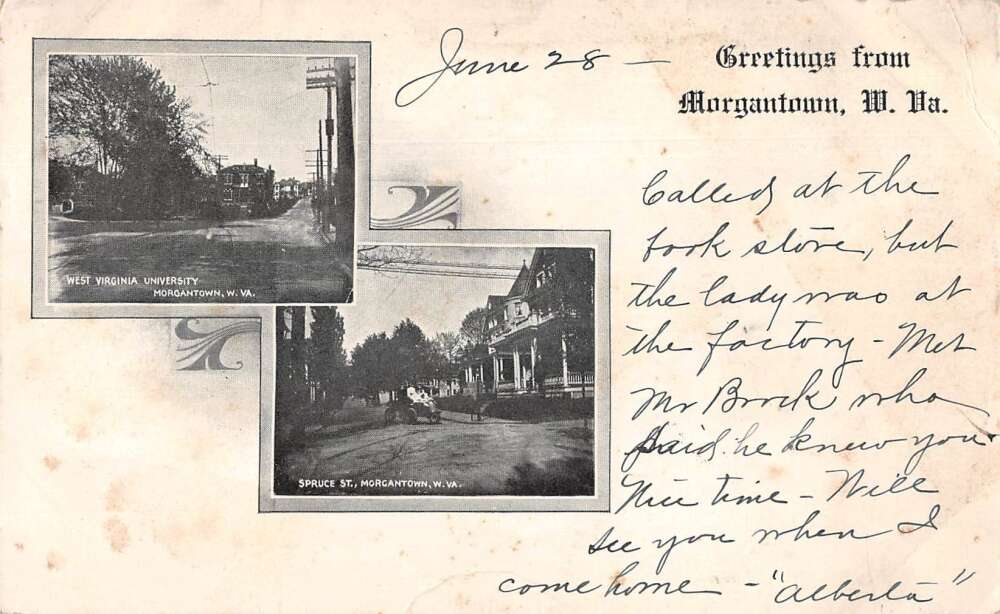 June 28 —
Greetings from
Morgantown, W. Va.
WEST VIRGINIA UNIVERSITY
MORGANTOWN, W. VA.
SPRUCE ST., MORGANTOWN, W. VA.
Called at the
book store, but
the lady was at
the factory - Met
Mr Brock who
said he knew you
Nice time - Will
see you when I
come home - "Alberta"